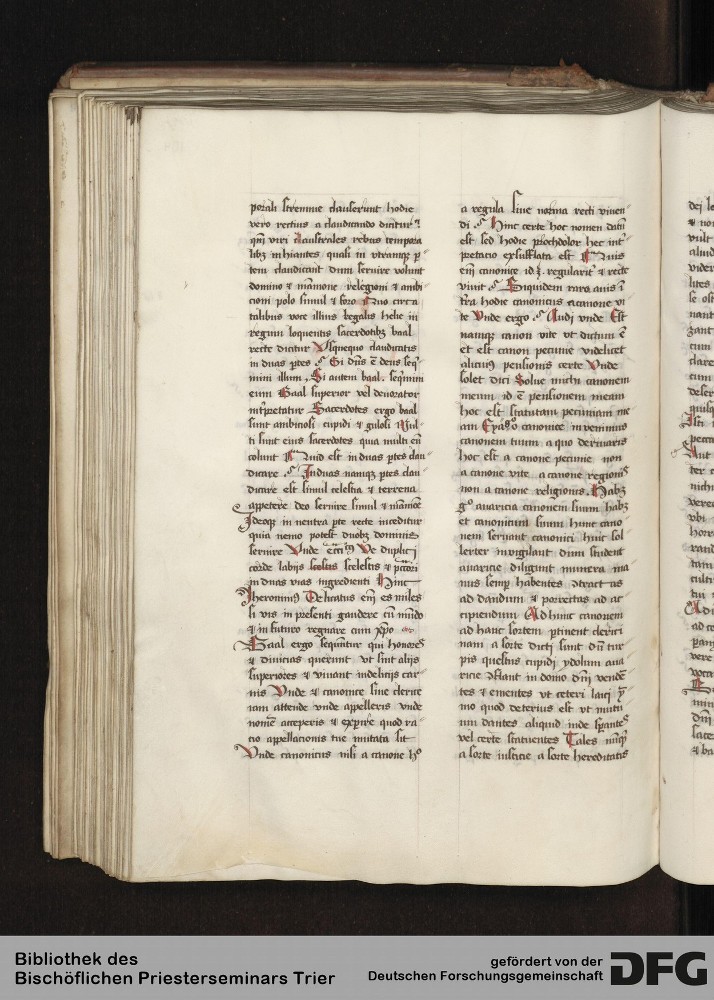 porali strennue clauserunt hodie
vero rectius a claudicando dicitur
qm̄ viri claustrales rebus tempora
libꝫ inhiantes quasi in vtramqꝫ ꝑ
tem claudicant dum seruire volunt
domino ⁊ māmone religioni ⁊ ambi
cioni polo simul ⁊ foro Quo circa
talibus voce illius legalis helie in
regnum loquentis sacerdotibꝫ baal
recte dicitur Vsquequo claudicatis
in duas ꝑtes Si dn̄s ē deus seq
mini illum Si autem baal seqmini
eum Baal superior vel deuorator
int̄pretatur Sacerdotes ergo baal
sunt ambiciosi cupidi ⁊ gulosi Mul
ti sunt eius sacerdotes quia multi eū
colunt Quid est in duas ꝑtes clau
dicare In duas namqꝫ ꝑtes clau
dicare est simul celestia ⁊ terrena
appetere deo seruire simul ⁊ māmone
Ideoqꝫ in neutra ꝑte recte inceditur
quia nemo potest duobꝫ dominis
seruire Vnde Ve duplici
corde labijs scelestis ⁊ pctōri
in duas vias ingredienti Hinc
Iheronim⁹ Delicatus em̄ es miles
si vis in presenti gaudere cū mūdo
⁊ in futuro regnare cum xp̄o
Baal ergo sequūtur qui honores
⁊ diuicias querunt vt sint alijs
superiores ⁊ viuant in delicijs car
nis Vnde ⁊ canonice siue clerice
iam attende vnde appelleris vnde
nomē acceperis ⁊ exprīe quod ra
cio appellacionis tue mutata sit
Vnde canonicus nisi a canone h°
a regula siue norma recti viuen
di Hinc certe hoc nomen datū
est sed hodie prochdolor hec int̄
pretacio exsufflata est Quis
em̄ canonice id ꝫ regularit̄ ⁊ recte
viuit Siquidem rara auis ī
t̄ra hodie canonicus a canone vi
te Vnde ergo Audi vnde Est
namqꝫ canon vite vt dictum ē
et est canon pecunie videlicet
alicui⁹ pensionis certe Vnde
solet dici Solue michi canonem
meum id ē pensionem meam
hoc est statutam pecuniam me
am canonice inuenimus
canonem tuum a quo deriuaris
hoc est a canone pecunie non
a canone vite a canone regionis
non a canone religionis Habꝫ
g° auaricia canonem suum habꝫ
et canonicum suum hunc cano
nem seruant canonici huic sol
lerter inuigilant dum student
auaricie diligunt munera ma
nus semꝑ habentes Stractas
ad dandum ⁊ porrectas ad ac
cipiendum Ad hunc canonem
ad hanc sortem ꝑtinent clerici
nam a sorte dicti sunt dū tur
pis questus cupidi ydolum aua
ricie in domo dn̄i vendē
tes ⁊ ementes vt ceteri laici
mo quod deterius est vt mutu
um dantes aliquid inde sꝑantes
vel certe statuentes Tales nūqꝫ
a sorte iusticie a sorte hereditatis
Bibliothek des
Bischöflichen Priesterseminars Trier
gefördert von der
Deutschen Forschungsgemeinschaft
DFG